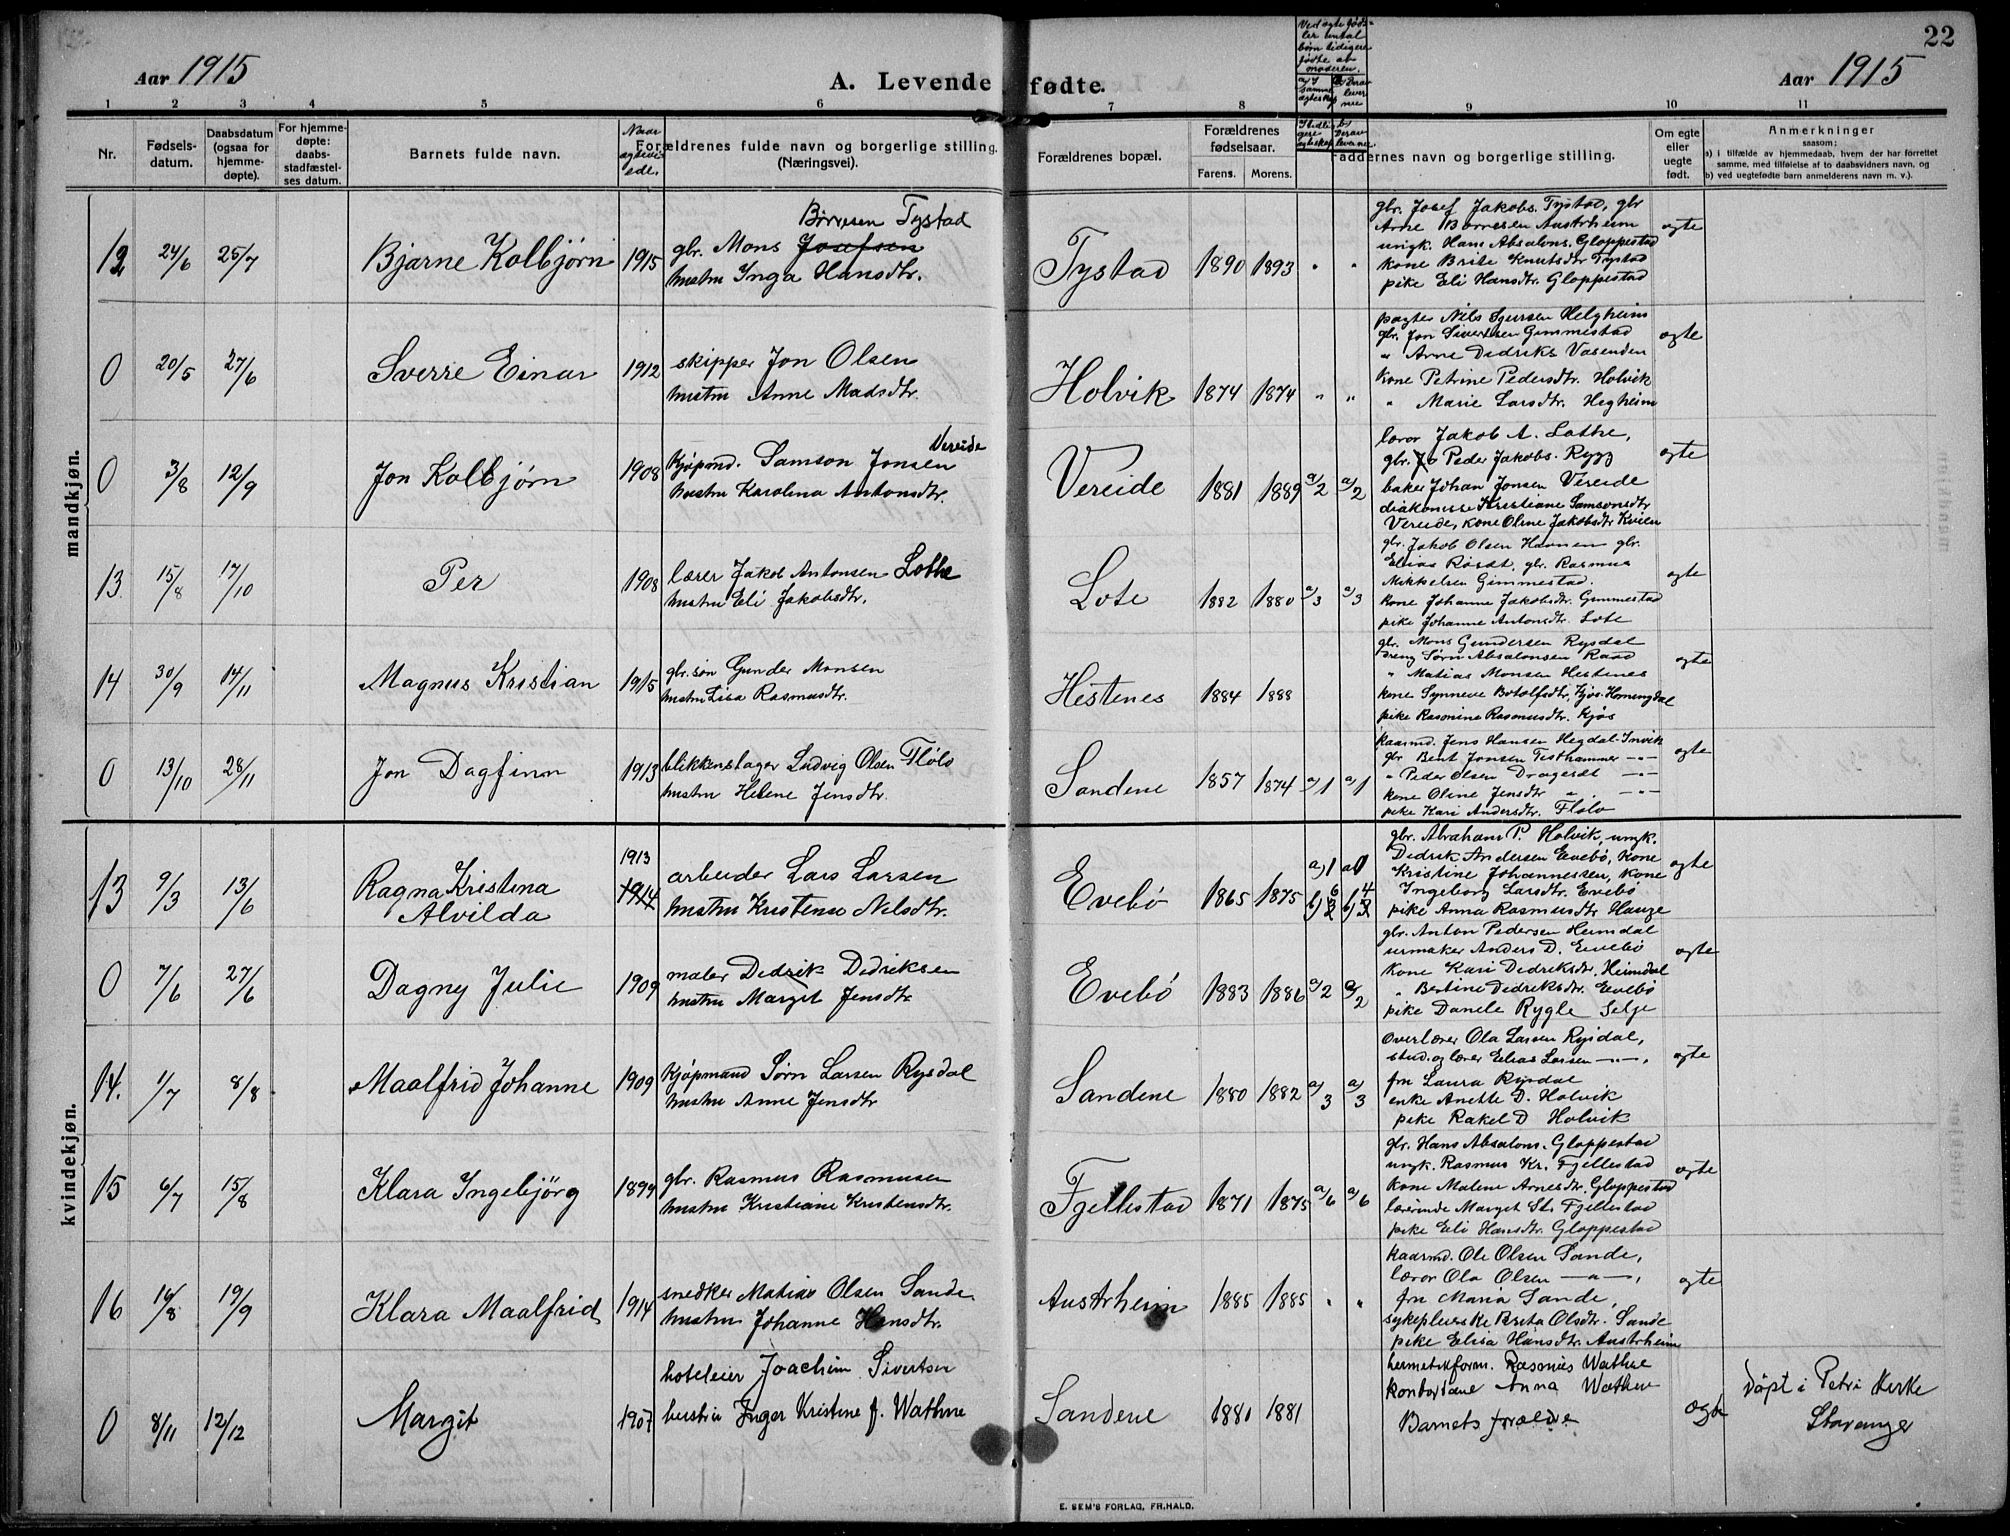 22
Aar 1915
A. Levende fødte.
Aar 1915
1 2 3 4 5 6 7 8 9 10 11
Ved egte føds-
ler antal
børn tidligere
fødte af
moderen.
Nr.
Fødsels-
datum.
Daabsdatum
(ogsaa for
hjemme-
døpte).
For hjemme-
døpte:
daabs-
stadfæstel-
ses datum.
Barnets fulde navn.
Naar
egtevi-
ede.
Forældrenes fulde navn og borgerlige stilling.
(Næringsvei).
Forældrenes bopæl.
Forældrenes
fødselsaar.
Farens. Morens.
Faddernes navn og borgerlige stilling.
Om egte
eller
uegte
født.
Anmerkninger
saasom;
a) i tilfælde av hjemmedaab, hvem der har forrettet
samme, med tilføielse af to daabsvidners navn, og
b) ved uegtefødte barn anmelderens navn m. v.).
mandkjøn.
12 24/6 25/7 Bjarne Kolbjørn 1915
Børresen Tystad
gbr. Mons Josefsen
hustru Inga Hansdtr.
Tystad 1890 1893 " "
gbr. Josef Jakobs. Tystad, gbr
Arne Børresen Austrheim
ungk. Hans Absalons. Gloppestad
kone Brite Knutsdtr Tystad
pike Eli Hansdtr. Gloppestad
egte
0 20/5 27/6 Sverre Einar 1912
skipper Jon Olsen
hustru Anne Madsdtr.
Holvik 1874 1874 " "
pagter Nils Sjursen Helgheim
gbr. Jon Sivertsen Gimmestad
" Arne Didriks Vasenden
kone Petrine Pedersdtr. Holvik
" Marie Larsdtr. Hegheim
egte
0 3/8 12/9 Jon Kolbjørn 1908
Vereide
kjøpmd. Samson Jonsen
hustru Karolina Antonsdtr.
Vereide 1881 1889 a/2 a/2
lærer Jakob A. Lothe,
gbr. Jo Peder Jakobs. Rygg
baker Johan Jonsen Vereide
diakonisse Kristiane Samsonsdtr
Vereide, kone Oline Jakobsdtr Kvien
egte
13 15/8 17/10 Per 1908
lærer Jakob Antonsen Lothe
hustru Eli Jakobsdtr.
Lote 1882 1880 a/3 a/3
gbr. Jakob Olsen Havnen gbr.
Elias Røset, gbr. Rasmus
Mikkelsen Gimmestad.
kone Johanne Jakobsdtr. Gimmestad
pike Johanne Antonsdtr. Lote
egte
14 30/9 14/11 Magnus Kristian 1915
gbr.søn Gunder Monsen
hustru Lisa Rasmusdtr.
Hestenes 1884 1888
gbr. Mons Gundersen Rysdal
dreng Sørn Absalonsen Raad
" Matias Monsen Hestenes
kone Synneve Botolfsdtr, Kjøs. Horningdal
pike Rasmine Rasmusdtr. Kjøs
egte
0 13/10 28/11 Jon Dagfinn 1913
blikkenslager Ludvig Olsen Flølo
hustru Helene Jensdtr.
Sandene 1857 1874 a/1 a/1
kaarmd. Jens Hansen Hegdal. Invik
gbr Bent Jonsen Tisthammer —"—
" Peder Olsen Drageset —"—
kone Oline Jensdtr " —"—
pike Kari Andersdtr. Flølo
egte
kvindekjøn.
13 9/3 13/6 Ragna Kristina
Alvilda
1913
1914
arbeider Lars Larsen
hustru Kristense Nilsdtr.
Evebø 1865 1875 a)1 a)1
b) 6 b) 4
gbr. Abraham P. Holvik, ungk.
Didrik Andersen Evebø, kone
Kristine Johannessen, kone
Ingeborg Larsdtr. Evebø
pike Anna Rasmusdtr Hauge
egte
0 7/6 27/6 Dagny Julie 1909
maler Didrik Didriksen
hustru Margit Jensdtr
Evebø 1883 1886 a/2 a/2
gbr. Anton Pedersen Heimdal
urmaker Anders D. Evebø
kone Kari Didriksdtr. Heimdal
" Bertine Didriksdtr. Evebø
pike Danele Rygle Selje
egte
14. 1/7 8/8 Maalfrid Johanne 1909
kjøpmand Sørn Larsen Rysdal
hustru Anne Jensdtr
Sandene 1880 1882 a/3 a/3
overlærer Ola Larsen Rysdal,
stud. og lærer Elias Larsen —"—,
fru Laura Rysdal
enke Anette D. Holvik
pike Rakel D Holvik
egte
15 6/7 15/8 Klara Ingebjörg 1899
gbr. Rasmus Rasmusen
hustru Kristiane Kristensdtr.
Fjellestad 1871 1875 a/6 a/6
gbr. Hans Absalons. Gloppestad
ungk. Rasmus Kr. Fjellestad
kone Malene Arnesdtr. Gloppestad
lærerinde Margit St. Fjellestad
pike Eli Hansdtr. Gloppestad
egte
16 14/8 19/9 Klara Maalfrid 1914
snedker Matias Olsen Sande
hustru Johanne Hansdtr.
Austrheim 1885 1885 " "
kaarmd. Ole Olsen Sande,
lærer Ola Olsen —"—,
fru Maria Sande,
sykepleierske Brita Olsdtr. Sande
pike Elisa Hansdtr. Austrheim
egte
0 8/11 12/12 Margit 1907
hoteleier Joachim Sivertsen
hustru Inger Kristine f. Wathne
Sandene 1881 1881
hermetikform. Rasmus Wathne
kontordame Anna Wathne
Barnets forældre
egte
Døpt i Petri Kirke
Stavanger
E. SEM'S FORLAG, FR.HALD.